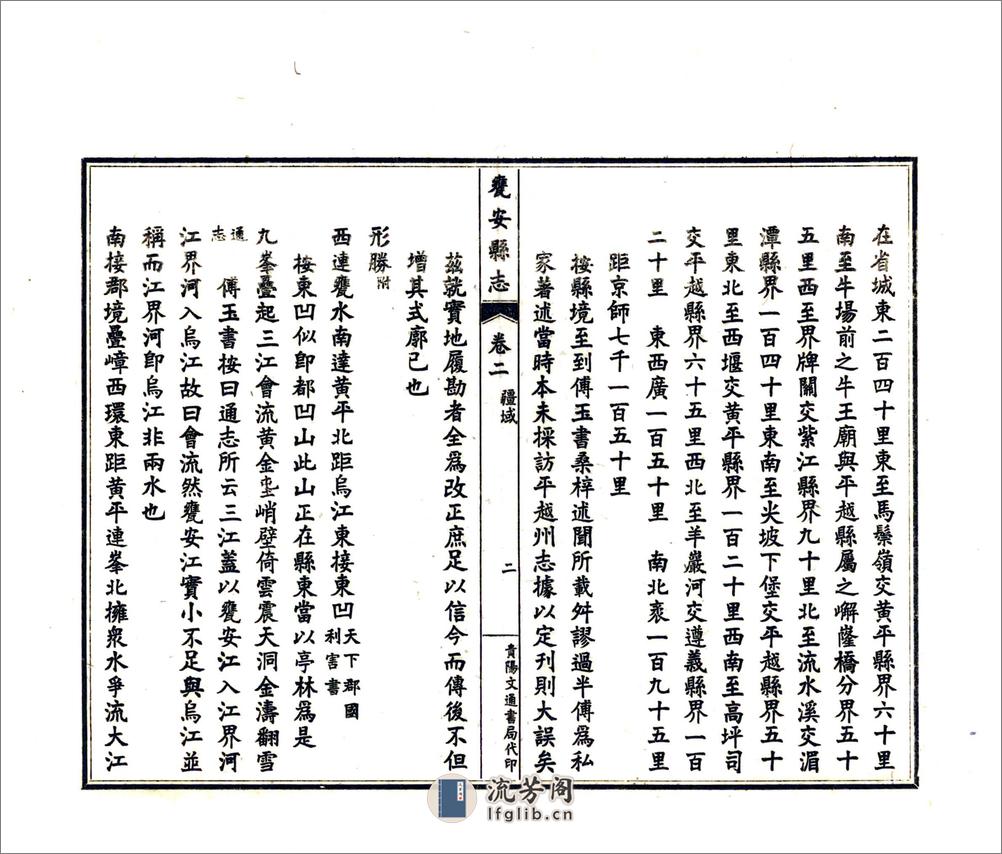 在省城東二百四十里東至馬鬃嶺交黄平縣界六十里
南至牛場前之牛王廟與平越縣屬之嶰窿橋分界五十
五里西至界牌關交紫江縣界九十里北至流水溪交湄
潭縣界一百四十里東南至尖坡下堡交平越縣界五十
里東北至西堰交黄平縣界一百二十里西南至高坪司
交平越縣界六十五里西北至羊巖河交遵義縣界一百
二十里　東西廣一百五十里　南北袤一百九十五里
距京師七千一百五十里
按縣境至到傅玉書桑梓述聞所載舛謬過半傅爲私
家著述當時本未採訪平越州志據以定刊則大誤矣
甕安縣志　卷二　疆域　二　貴陽文通書局代印
茲就實地履勘者全爲改正庶足以信今而傳後不但
增其式廓已也
形勝附
西連甕水南達黄平北距烏江東接東凹天下郡國利害書
按東凹似卽都凹山此山正在縣東當以亭林爲是
九峯疊起三江會流黄金坐峭壁倚雲震天洞金濤翻雪
通志　傅玉書按曰通志所云三江蓋以甕安江入江界河
江界河入烏江故曰會流然甕安江實小不足與烏江並
稱而江界河卽烏江非兩水也
南接郡境疊嶂西環東距黄平連峯北擁衆水爭流大江
流芳阁
lfglib.cn